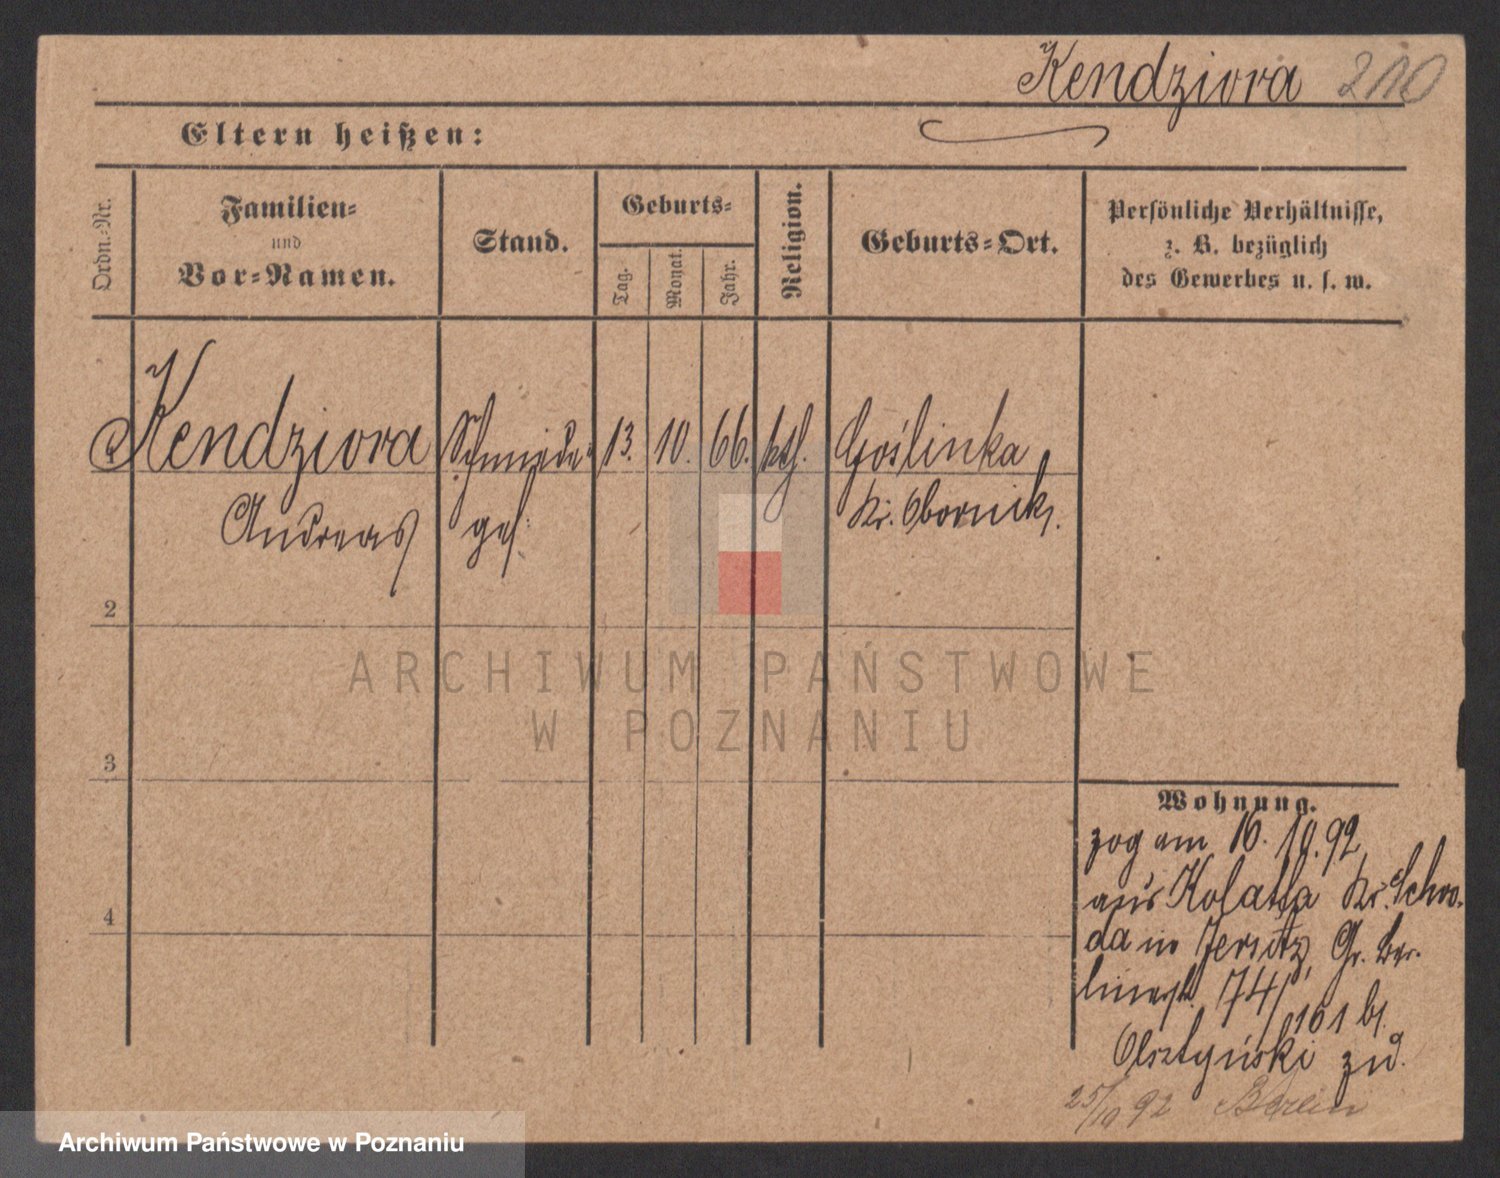 Kendziora 210
Eltern heißen:
Ordn.-Nr.
Familien-
und
Vor-Namen.
Stand.
Geburts-
Tag.
Monat.
Jahr.
Religion.
Geburts-Ort.
Persönliche Verhältnisse,
z. B. bezüglich
des Gewerbes u. s. w.
Kendziora Schmiede- 13. 10. 66. kth. Goślinka
Andreas ges. Kr. Obornik.
2
3
4
Wohnung.
zog am 16. 10. 92
aus Kolatta Kr. Schro-
da in Jersitz, Gr. Ber-
linerstr. 74/
161 b/
Olsztyński zu.
25/10 92 Berlin
ARCHIWUM PAŃSTWOWE
W POZNANIU
Archiwum Państwowe w Poznaniu